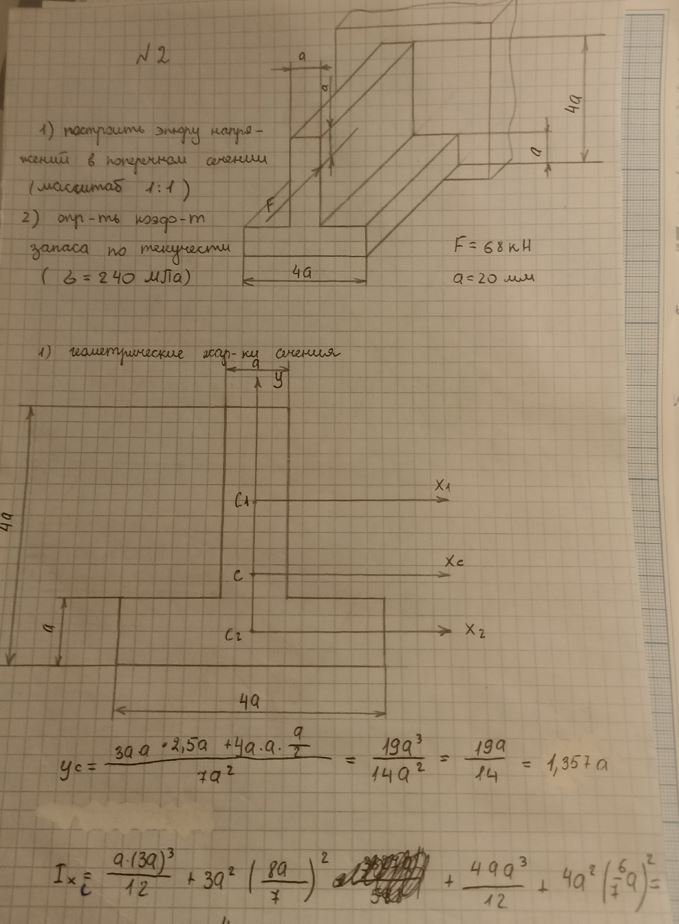 N2
a
a
4a
a
1) построить эпюру напря-
жений в поперечном сечении
(масштаб 1:1)
2) опр-ть коэф-т
запаса по текучести
(σ = 240 МПа)
F
4a
F = 68 кН
a = 20 мм
1) геометрические хар-ки сечения
a
y
C1
x1
4a
C
xc
a
C2
x2
4a
yc = (3a·a·2,5a + 4a·a·a/2)/(7a²) = 19a³/14a² = 19a/14 = 1,357a
Ixc = a·(3a)³/12 + 3a²(8a/7)² + 4a·a³/12 + 4a²(6/7 a)² =